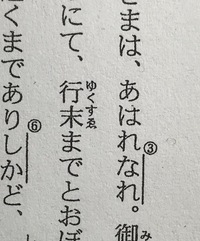 さまは、あはれなれ③。御み
にて、行末ゆくすゑまでとおぼ
くまでありしかど⑥、